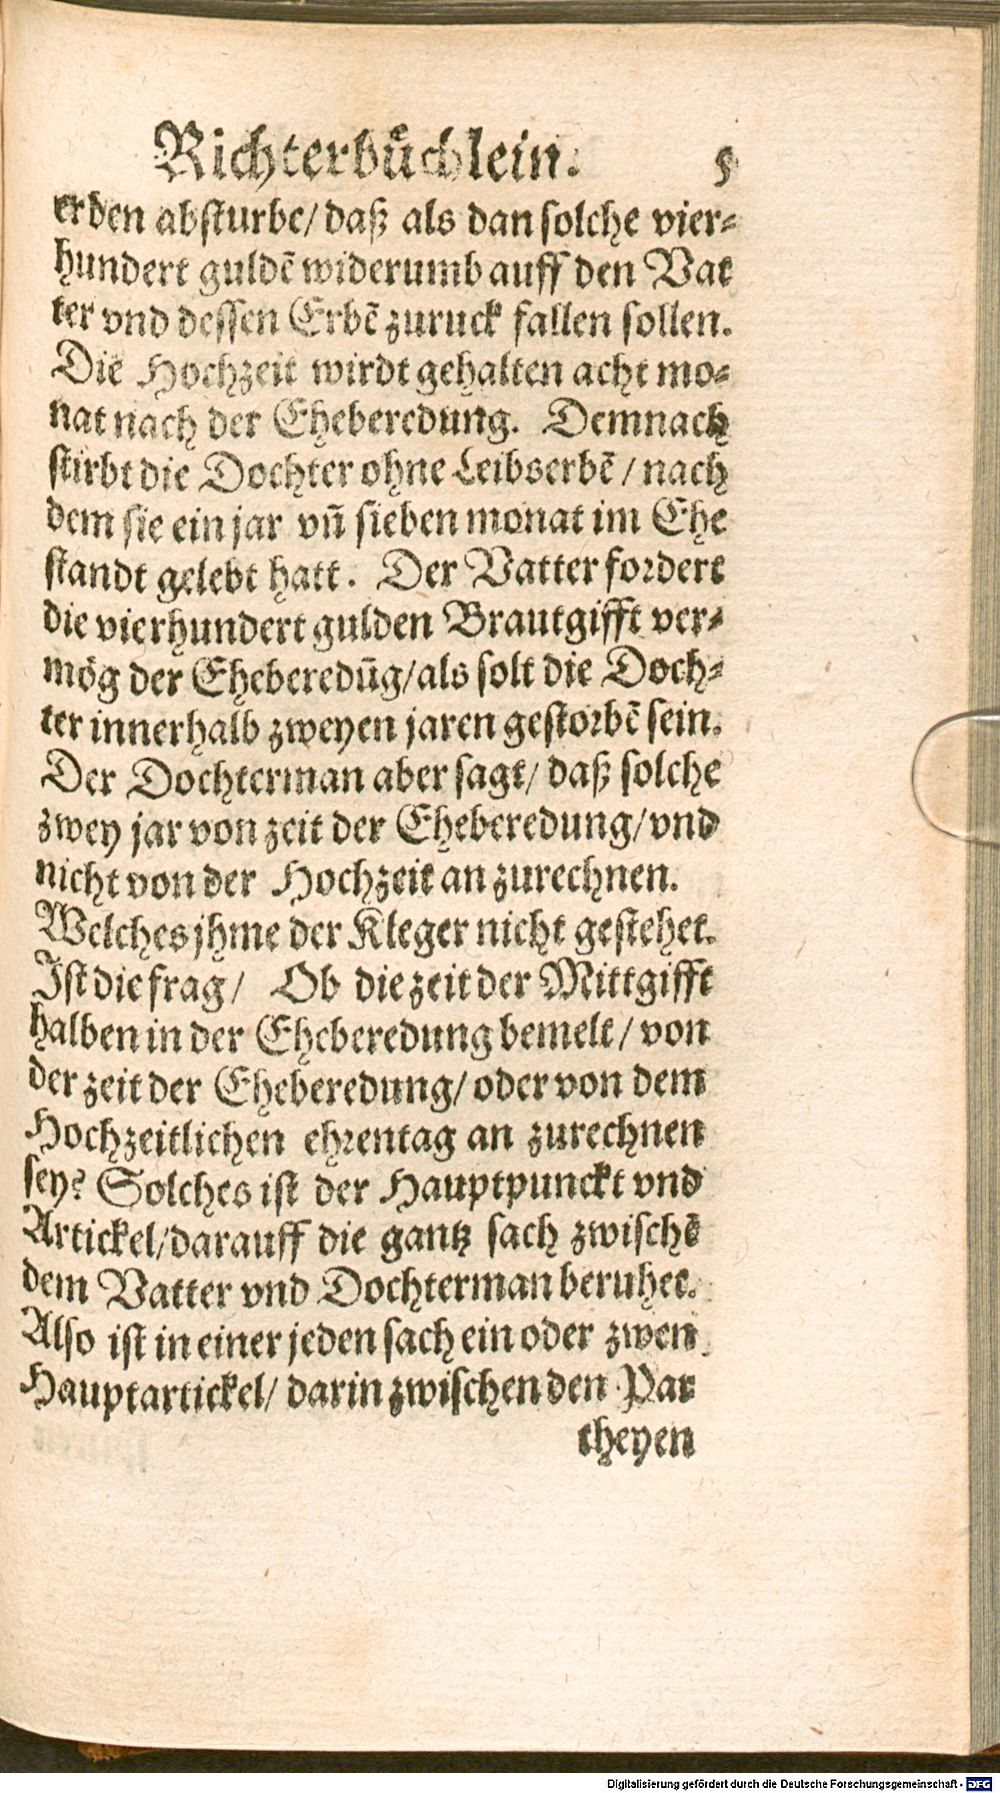 Richterbuͤchlein. 5
erben absturbe/ daß als dan solche vier-
hundert guldē widerumb auff den Vat
ter vnd dessen Erbē zuruck fallen sollen.
Die Hochzeit wirdt gehalten acht mo-
nat nach der Eheberedung. Demnach
stirbt die Dochter ohne Leibserbē / nach
dem sie ein jar vñ sieben monat im Ehe
standt gelebt hatt. Der Vatter fordert
die vierhundert gulden Brautgifft ver-
mög der Eheberedūg/als solt die Doch-
ter innerhalb zweyen jaren gestorbē sein.
Der Dochterman aber sagt/ daß solche
zwey jar von zeit der Eheberedung/vnd
nicht von der Hochzeit an zurechnen.
Welches jhme der Kleger nicht gestehet.
Ist die frag/ Ob die zeit der Mittgifft
halben in der Eheberedung bemelt/ von
der zeit der Eheberedung/ oder von dem
Hochzeitlichen ehrentag an zurechnen
sey? Solches ist der Hauptpunckt vnd
Artickel/darauff die gantz sach zwischē
dem Vatter vnd Dochterman beruhet.
Also ist in einer jeden sach ein oder zwen
Hauptartickel/ darin zwischen den Par
theyen
Digitalisierung gefördert durch die Deutsche Forschungsgemeinschaft - DFG